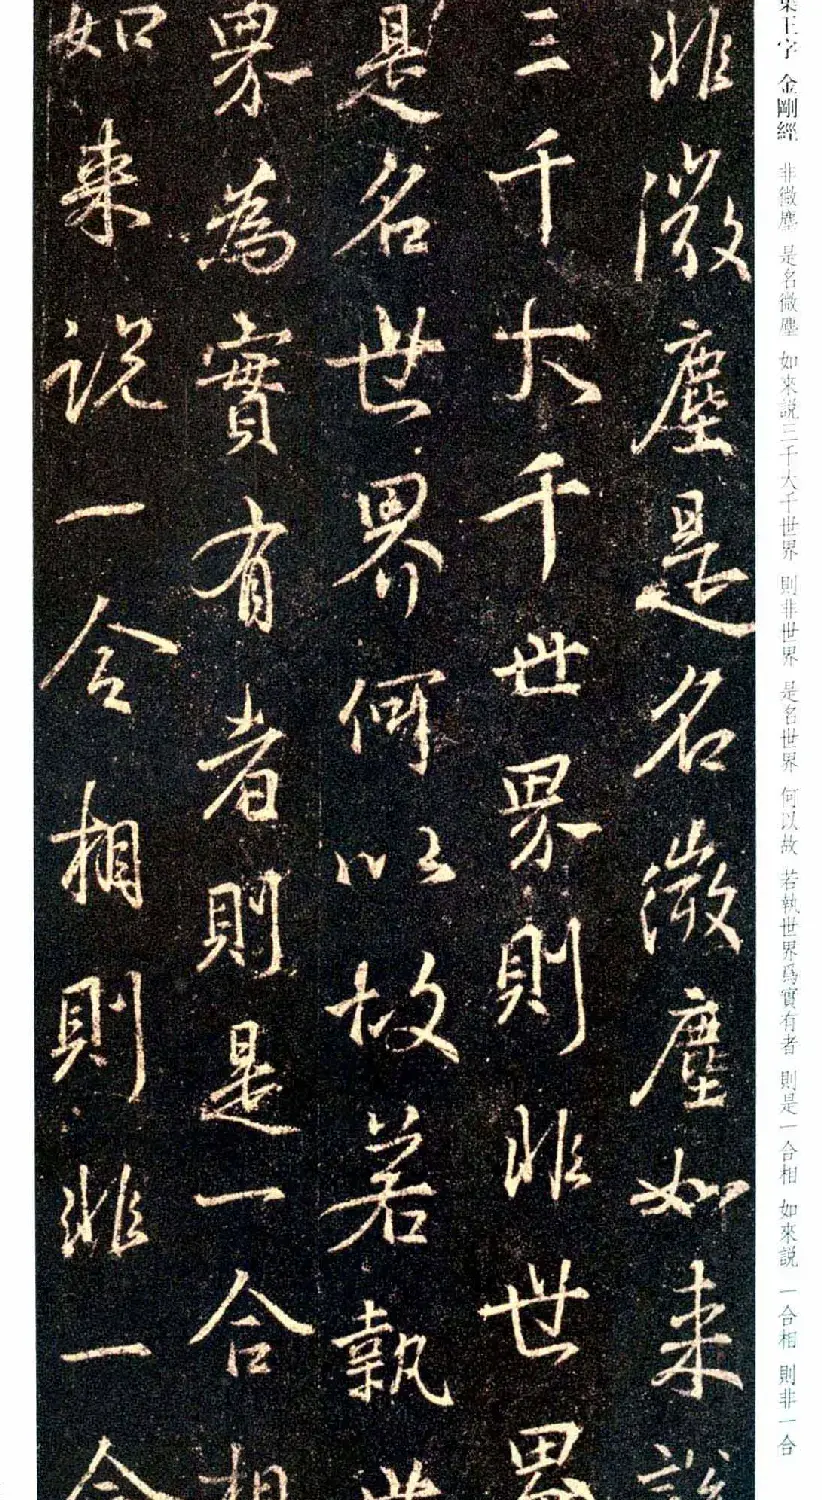 集王字 金剛經 非微塵 是名微塵 如來説三千大千世界 則非世界 是名世界 何以故 若執世界爲實有者 則是一合相 如來説 一合相 則非一合
非微塵是名微塵如来説
三千大千世界則非世界
是名世界何以故若執世
界為實有者則是一合相
如来説一合相則非一合